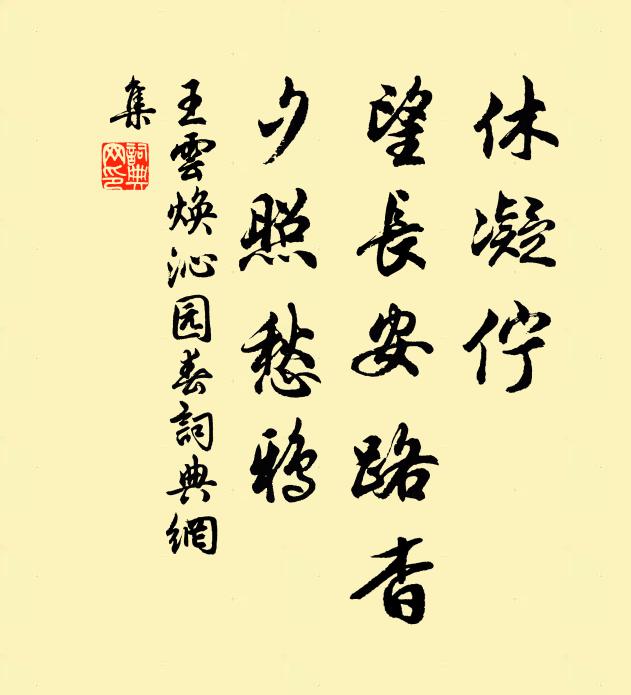 休凝伫
望長安路杳
夕照愁鴉
王雲焕沁园春詞典網
集
詞典網印